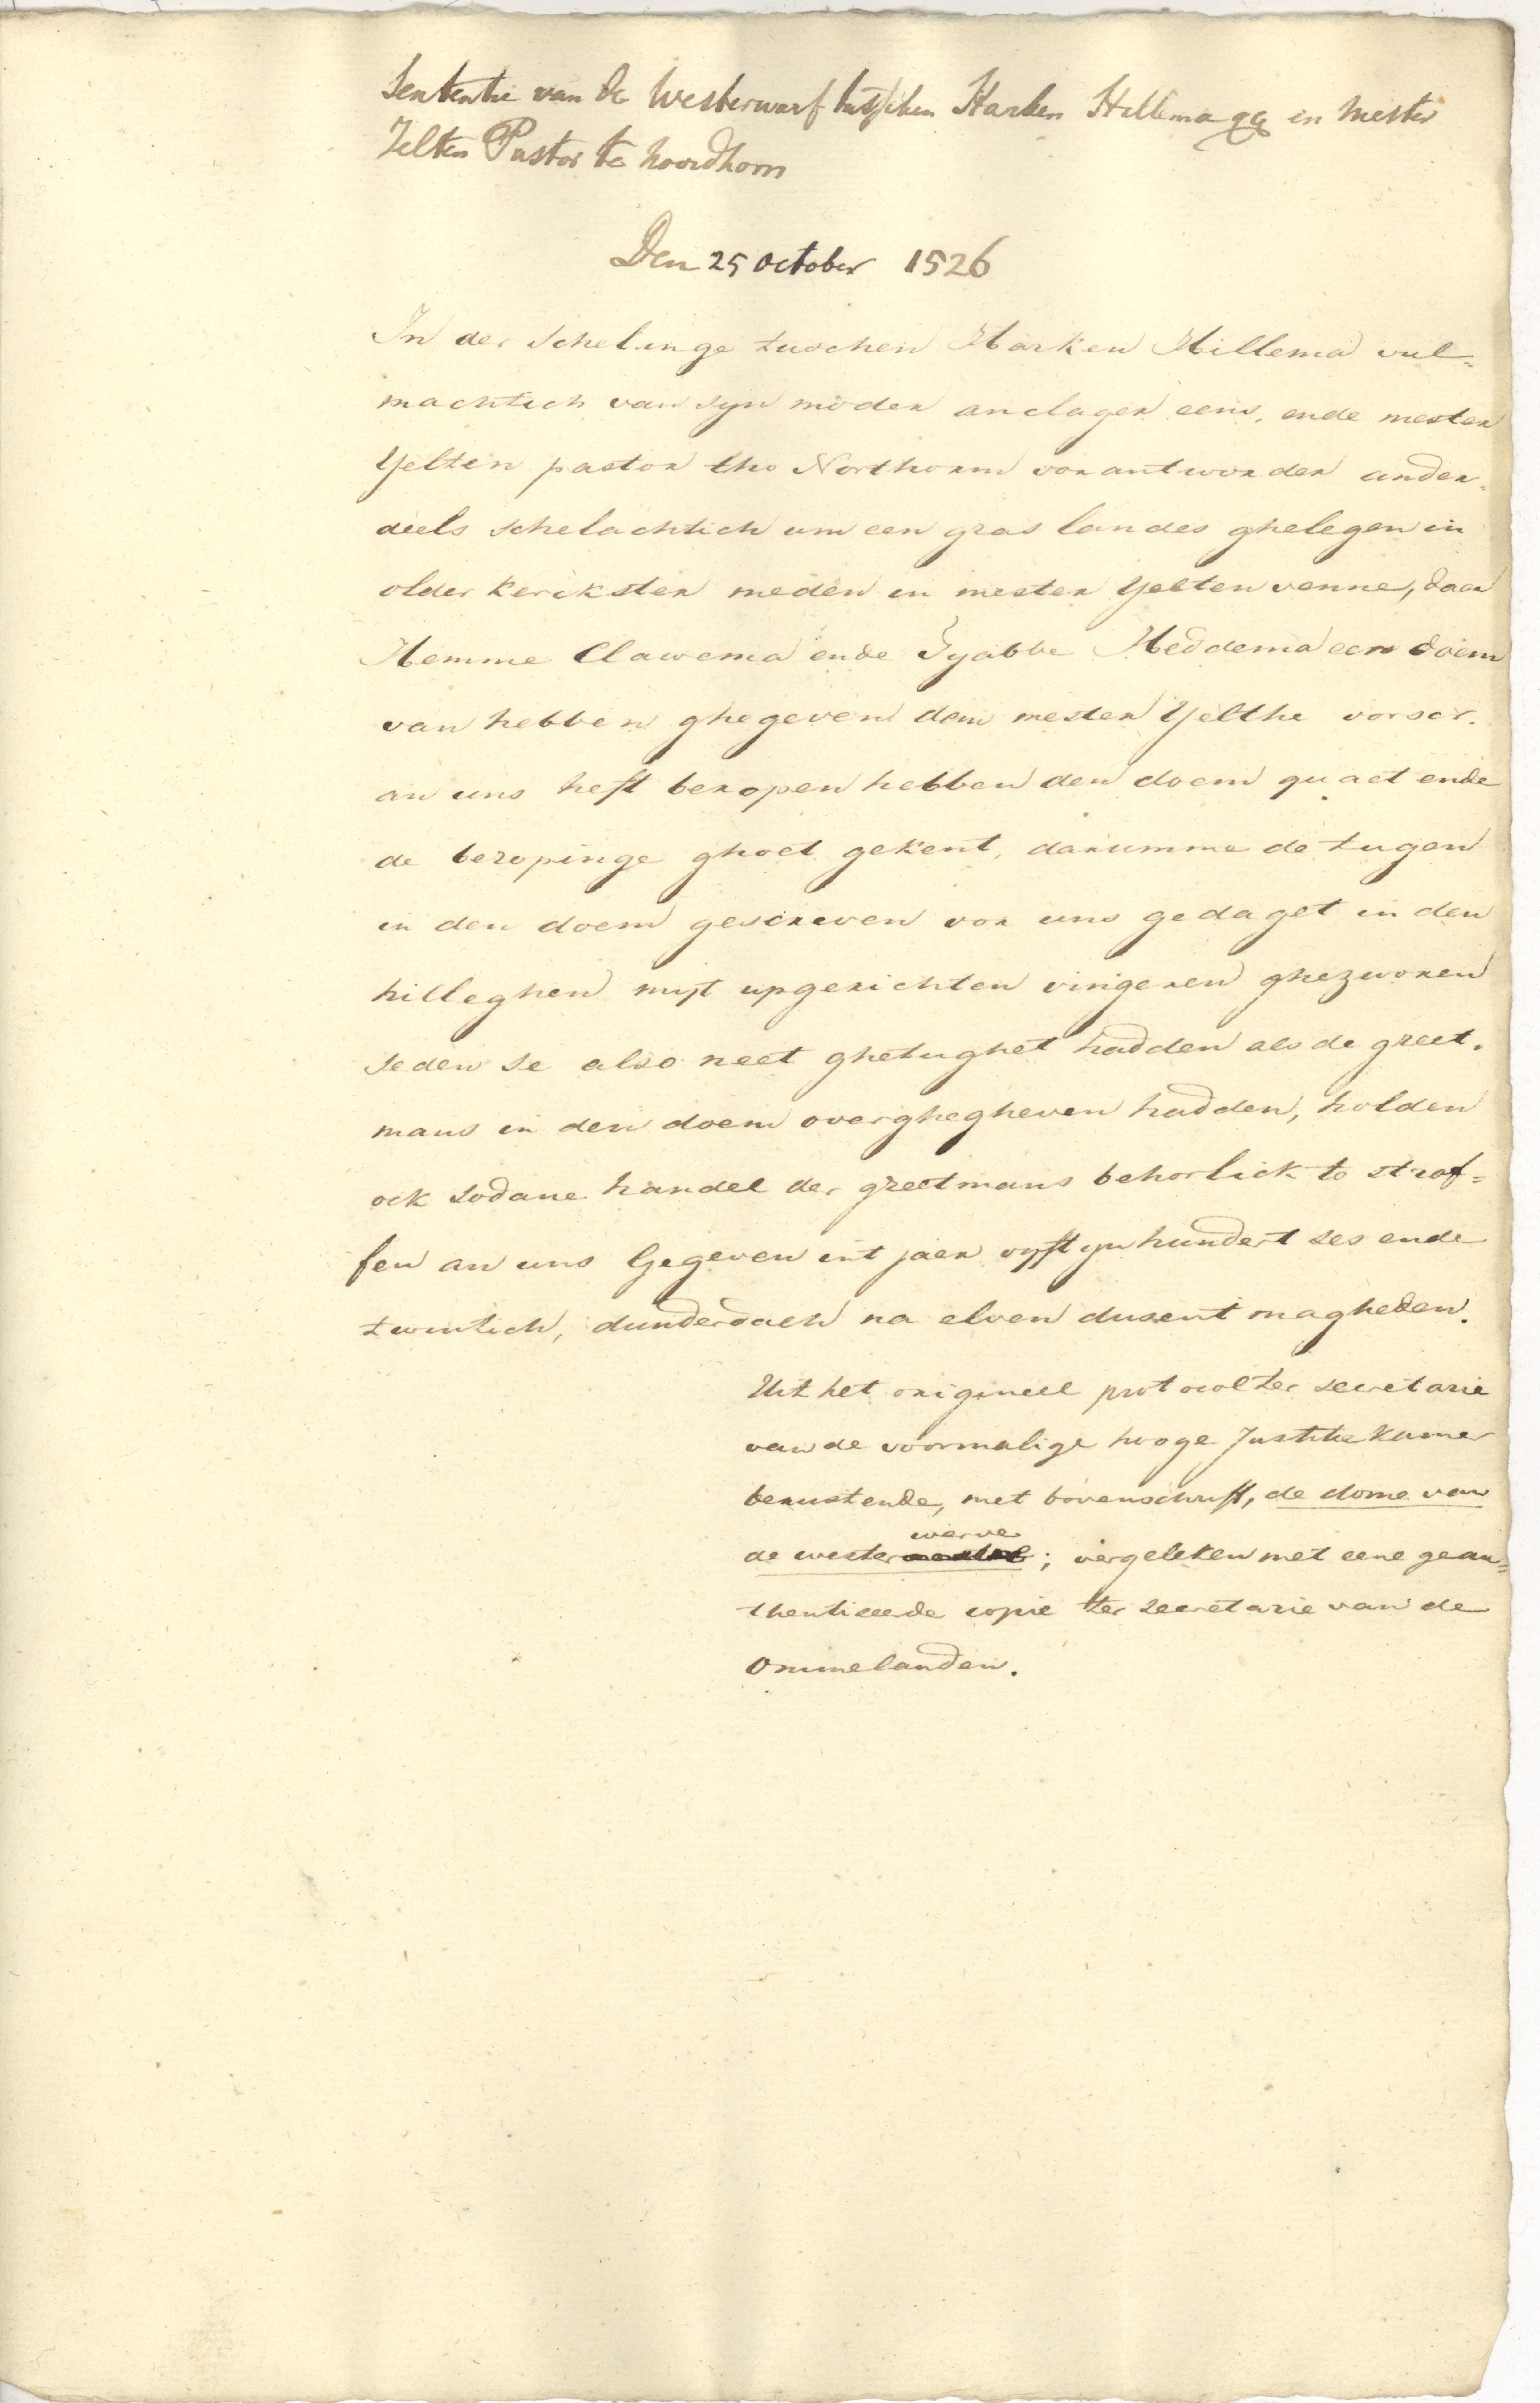 Sententie van de Westerwarf tusschen Harken Hillema qq en Mester
Jelten Pastor te Noordhorn
Den 25 October 1526
In der schelinge tuschen Harken Hillema vul=
machtich van syn moder anclager eens, ende mester
Yelten pastor tho Northorm vorantworder ander=
deels schelachtich um een gras landes ghelegen in
older kerckster meden in mester Yelten venne, daer
Hemme Clawema ende Tyabbe Heddema een doem
van hebben ghegeven dem mester Yelthe vorscr.
an uns heft beropen hebben den doem quaet ende
de beropinge ghoet gekent, darumme de tugen
in den doem gescreven vor uns gedaget in den
hilleghen myt upgerichten vingeren ghezworen
seden se also neet ghetughet hadden als de greet=
mans in den doem overghegheven hadden, holden
ock sodane handel der greetmans behorlick to straf=
fen an uns Gegeven int jaer vyftyn hundert ses ende
twintich, dunderdach na elven dusent magheden.
Uit het origineel protocol ter secretarie
van de voormalige hooge Justitie kamer
berustende, met bovenschrift, de dome van
de wester werve; vergeleken met eene geau=
thenticeerde copie ter secretarie van de
Ommelanden.